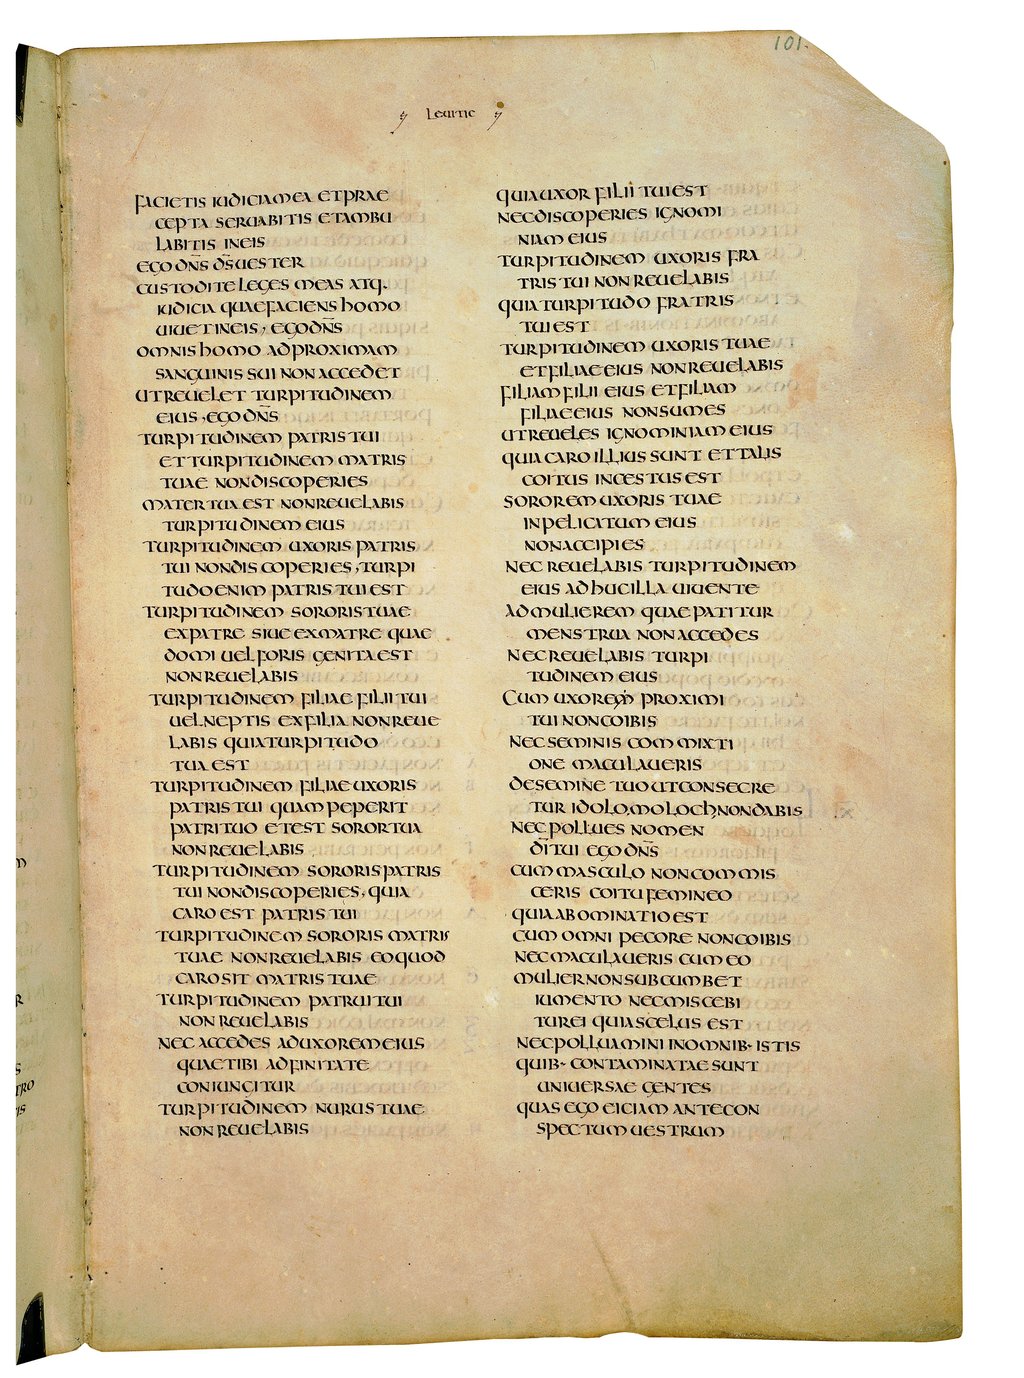 101.
Leuitic
FACIETIS IUDICIA MEA ET PRAE
CEPTA SERUABITIS ET AMBU
LABITIS IN EIS
EGO DN̄S DS̄ UESTER
CUSTODITE LEGES MEAS ATQ.
IUDICIA QUAE FACIENS HOMO
UIUET IN EIS, EGO DN̄S
OMNIS HOMO AD PROXIMAM
SANGUINIS SUI NON ACCEDET
UT REUELET TURPITUDINEM
EIUS, EGO DN̄S
TURPITUDINEM PATRIS TUI
ET TURPITUDINEM MATRIS
TUAE NON DISCOPERIES
MATER TUA EST NON REUELABIS
TURPITUDINEM EIUS
TURPITUDINEM UXORIS PATRIS
TUI NON DISCOPERIES, TURPI
TUDO ENIM PATRIS TUI EST
TURPITUDINEM SORORIS TUAE
EX PATRE SIUE EX MATRE QUAE
DOMI UEL FORIS GENITA EST
NON REUELABIS
TURPITUDINEM FILIAE FILII TUI
UEL NEPTIS EX FILIA NON REUE
LABIS QUIA TURPITUDO
TUA EST
TURPITUDINEM FILIAE UXORIS
PATRIS TUI QUAM PEPERIT
PATRI TUO ET EST SOROR TUA
NON REUELABIS
TURPITUDINEM SORORIS PATRIS
TUI NON DISCOPERIES, QUIA
CARO EST PATRIS TUI
TURPITUDINEM SORORIS MATRIS
TUAE NON REUELABIS EO QUOD
CARO SIT MATRIS TUAE
TURPITUDINEM PATRUI TUI
NON REUELABIS
NEC ACCEDES AD UXOREM EIUS
QUAE TIBI ADFINITATE
CONIUNGITUR
TURPITUDINEM NURUS TUAE
NON REUELABIS
QUIA UXOR FILII TUI EST
NEC DISCOPERIES IGNOMI
NIAM EIUS
TURPITUDINEM UXORIS FRA
TRIS TUI NON REUELABIS
QUIA TURPITUDO FRATRIS
TUI EST
TURPITUDINEM UXORIS TUAE
ET FILIAE EIUS NON REUELABIS
FILIAM FILII EIUS ET FILIAM
FILIAE EIUS NON SUMES
UT REUELES IGNOMINIAM EIUS
QUIA CARO ILLIUS SUNT ET TALIS
COITUS INCESTUS EST
SOROREM UXORIS TUAE
IN PELICATUM EIUS
NON ACCIPIES
NEC REUELABIS TURPITUDINEM
EIUS ADHUC ILLA UIUENTE
AD MULIEREM QUAE PATITUR
MENSTRUA NON ACCEDES
NEC REUELABIS TURPI
TUDINEM EIUS
CUM UXOREM PROXIMI
TUI NON COIBIS
NEC SEMINIS COMMIXTI
ONE MACULAUERIS
DE SEMINE TUO UT CONSECRE
TUR IDOLO, MOLOCH NON DABIS
NEC POLLUES NOMEN
DĪ TUI EGO DN̄S
CUM MASCULO NON COMMIS
CERIS COITU FEMINEO
QUIA ABOMINATIO EST
CUM OMNI PECORE NON COIBIS
NEC MACULAUERIS CUM EO
MULIER NON SUBCUMBET
IUMENTO NEC MISCEBI
TUR EI QUIA SCELUS EST
NEC POLLUAMINI IN OMNIB· ISTIS
QUIB· CONTAMINATAE SUNT
UNIUERSAE GENTES
QUAS EGO EICIAM ANTE CON
SPECTUM UESTRUM